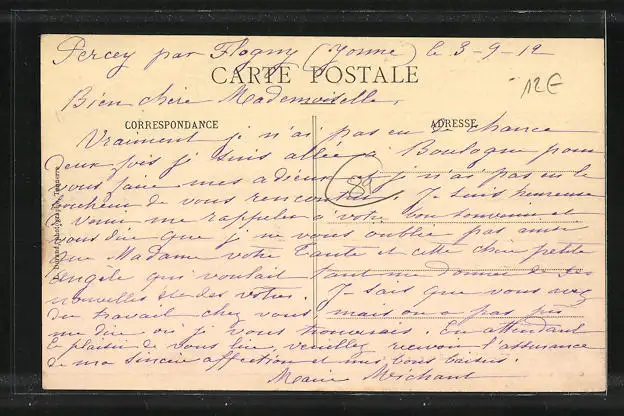 Percey par Flogny (Yonne) le 3-9-12
CARTE POSTALE
12E
Bien chère Mademoiselle,
CORRESPONDANCE
ADRESSE
Vraiment je n'ai pas eu de chance
deux fois je suis allée à Boulogne pour
vous faire mes adieux et je n'ai pas eu le
bonheur de vous rencontrer. Je suis heureuse
venir me rappeler à votre bon souvenir et
vous dire que je ne vous oublie pas ainsi
que Madame votre Tante et cette chère petite
Angèle qui voulait tant me donner de ses
nouvelles et des vôtres. Je sais que vous avez
du travail chez vous, mais on a pas pu
me dire où je vous trouverais. En attendant
le plaisir de vous lire, veuillez recevoir l'assurance
de ma sincère affection et mes bons baisers.
Marie Michaut